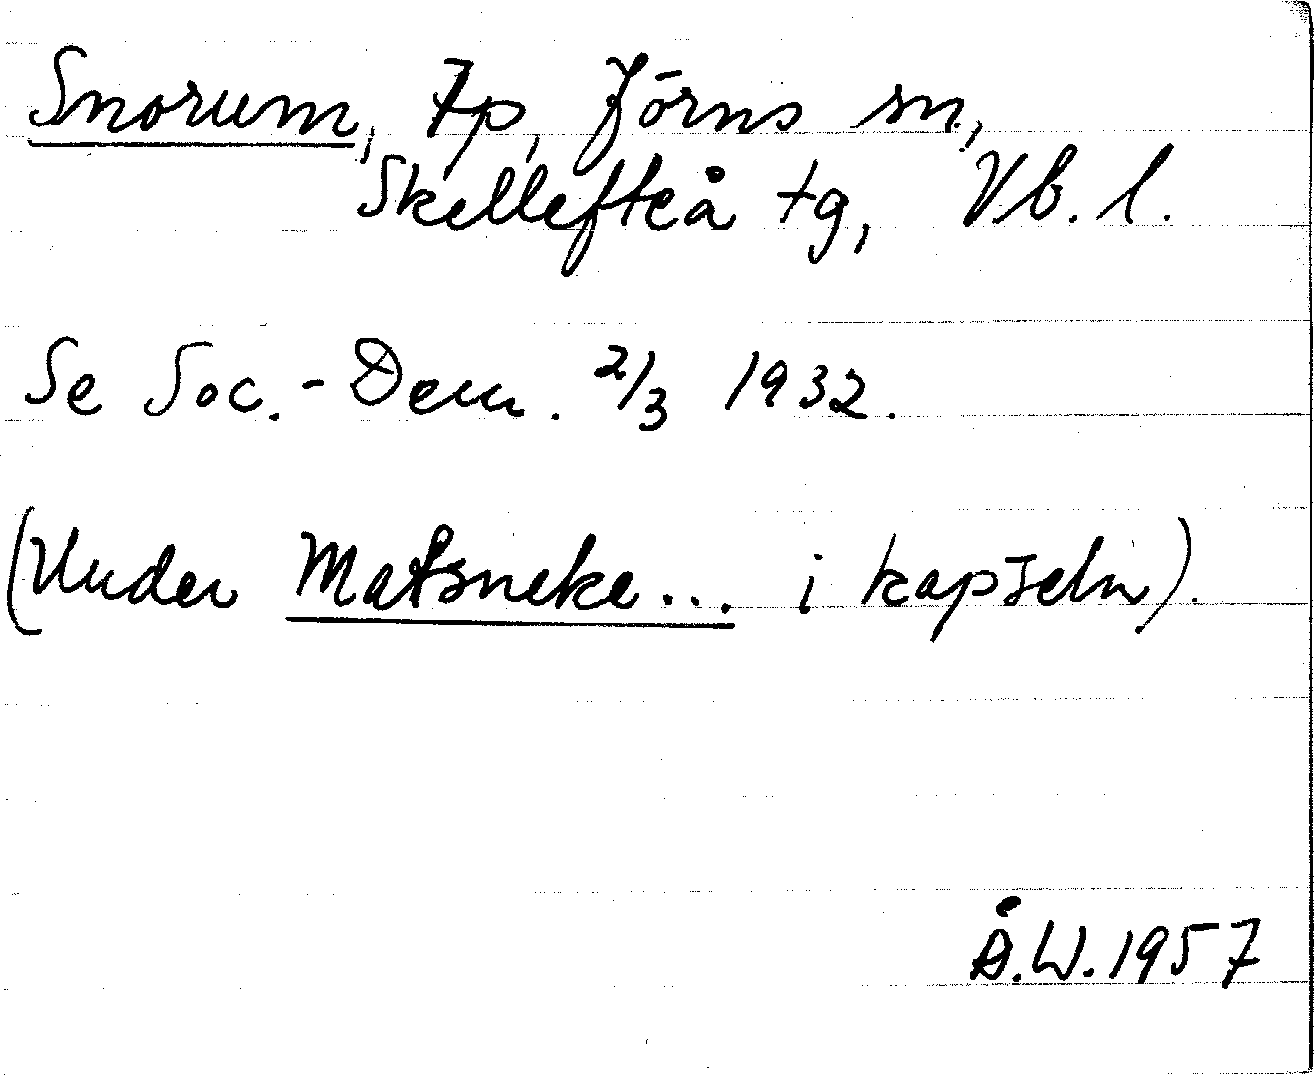 Snorum, tp, Jörns sn,
Skellefteå tg, Vb. l.
Se Soc.-Dem. 2/3 1932.
(Under Matsneke... i kapseln).
Å.W. 1957